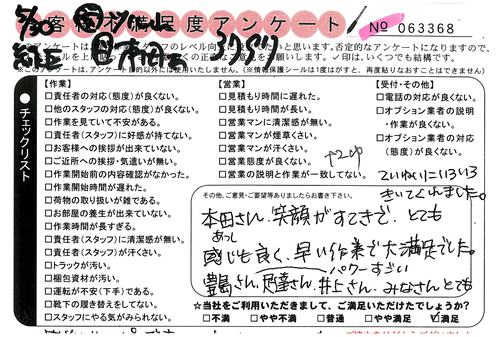 5/30
お客様不満足度アンケート
No 063368
このアンケートは
否定的なアンケートになりますので、
✓印は、いくつでも結構です。
※このアンケートは、アンケート目的以外には使用いたしません。(※情報保護シールは1度がはすと、再度貼りなおすことはできません)
●チェックリスト
【作業】
□責任者の対応(態度)が良くない。
□他のスタッフの対応(態度)が良くない。
□作業を見ていて不安がある。
□責任者(スタッフ)に好感が持てない。
□お客様への挨拶が出来ていない。
□ご近所への挨拶・気遣いが無い。
□作業開始前の内容確認がなかった。
□作業開始時間が遅れた。
□荷物の取り扱いが雑である。
□お部屋の養生が出来ていない。
□作業時間が長すぎる。
□責任者(スタッフ)に清潔感が無い。
□責任者(スタッフ)が汗くさい。
□トラックが汚い。
□梱包資材が汚い。
□運転が不安(下手)である。
□靴下の履き替えをしてない。
□スタッフにやる気がみられない。
【営業】
□見積もり時間に遅れた。
□見積もり時間が長い。
□営業マンに清潔感が無い。
□営業マンが煙草くさい。
□営業マンが汗くさい。
□営業態度が良くない。
□営業の説明と作業が一致してない。
【受付・その他】
□電話の対応が良くない。
□オプション業者の説明
・作業が良くない。
□オプション業者の対応
(態度)が良くない。
ていねいにいろいろ
きいてくれました。
その他、ご意見・ご要望等ありましたらお書き下さい。
本田さん、笑顔がすてきで、とても
感じも良く、早い作業で大満足でした。
豊島さん、足達さん、井上さん、みなさんとても
パワーすごい
☆当社をご利用いただきまして、ご満足いただけたでしょうか?
□不満 □やや不満 □普通 □やや満足 ☑満足